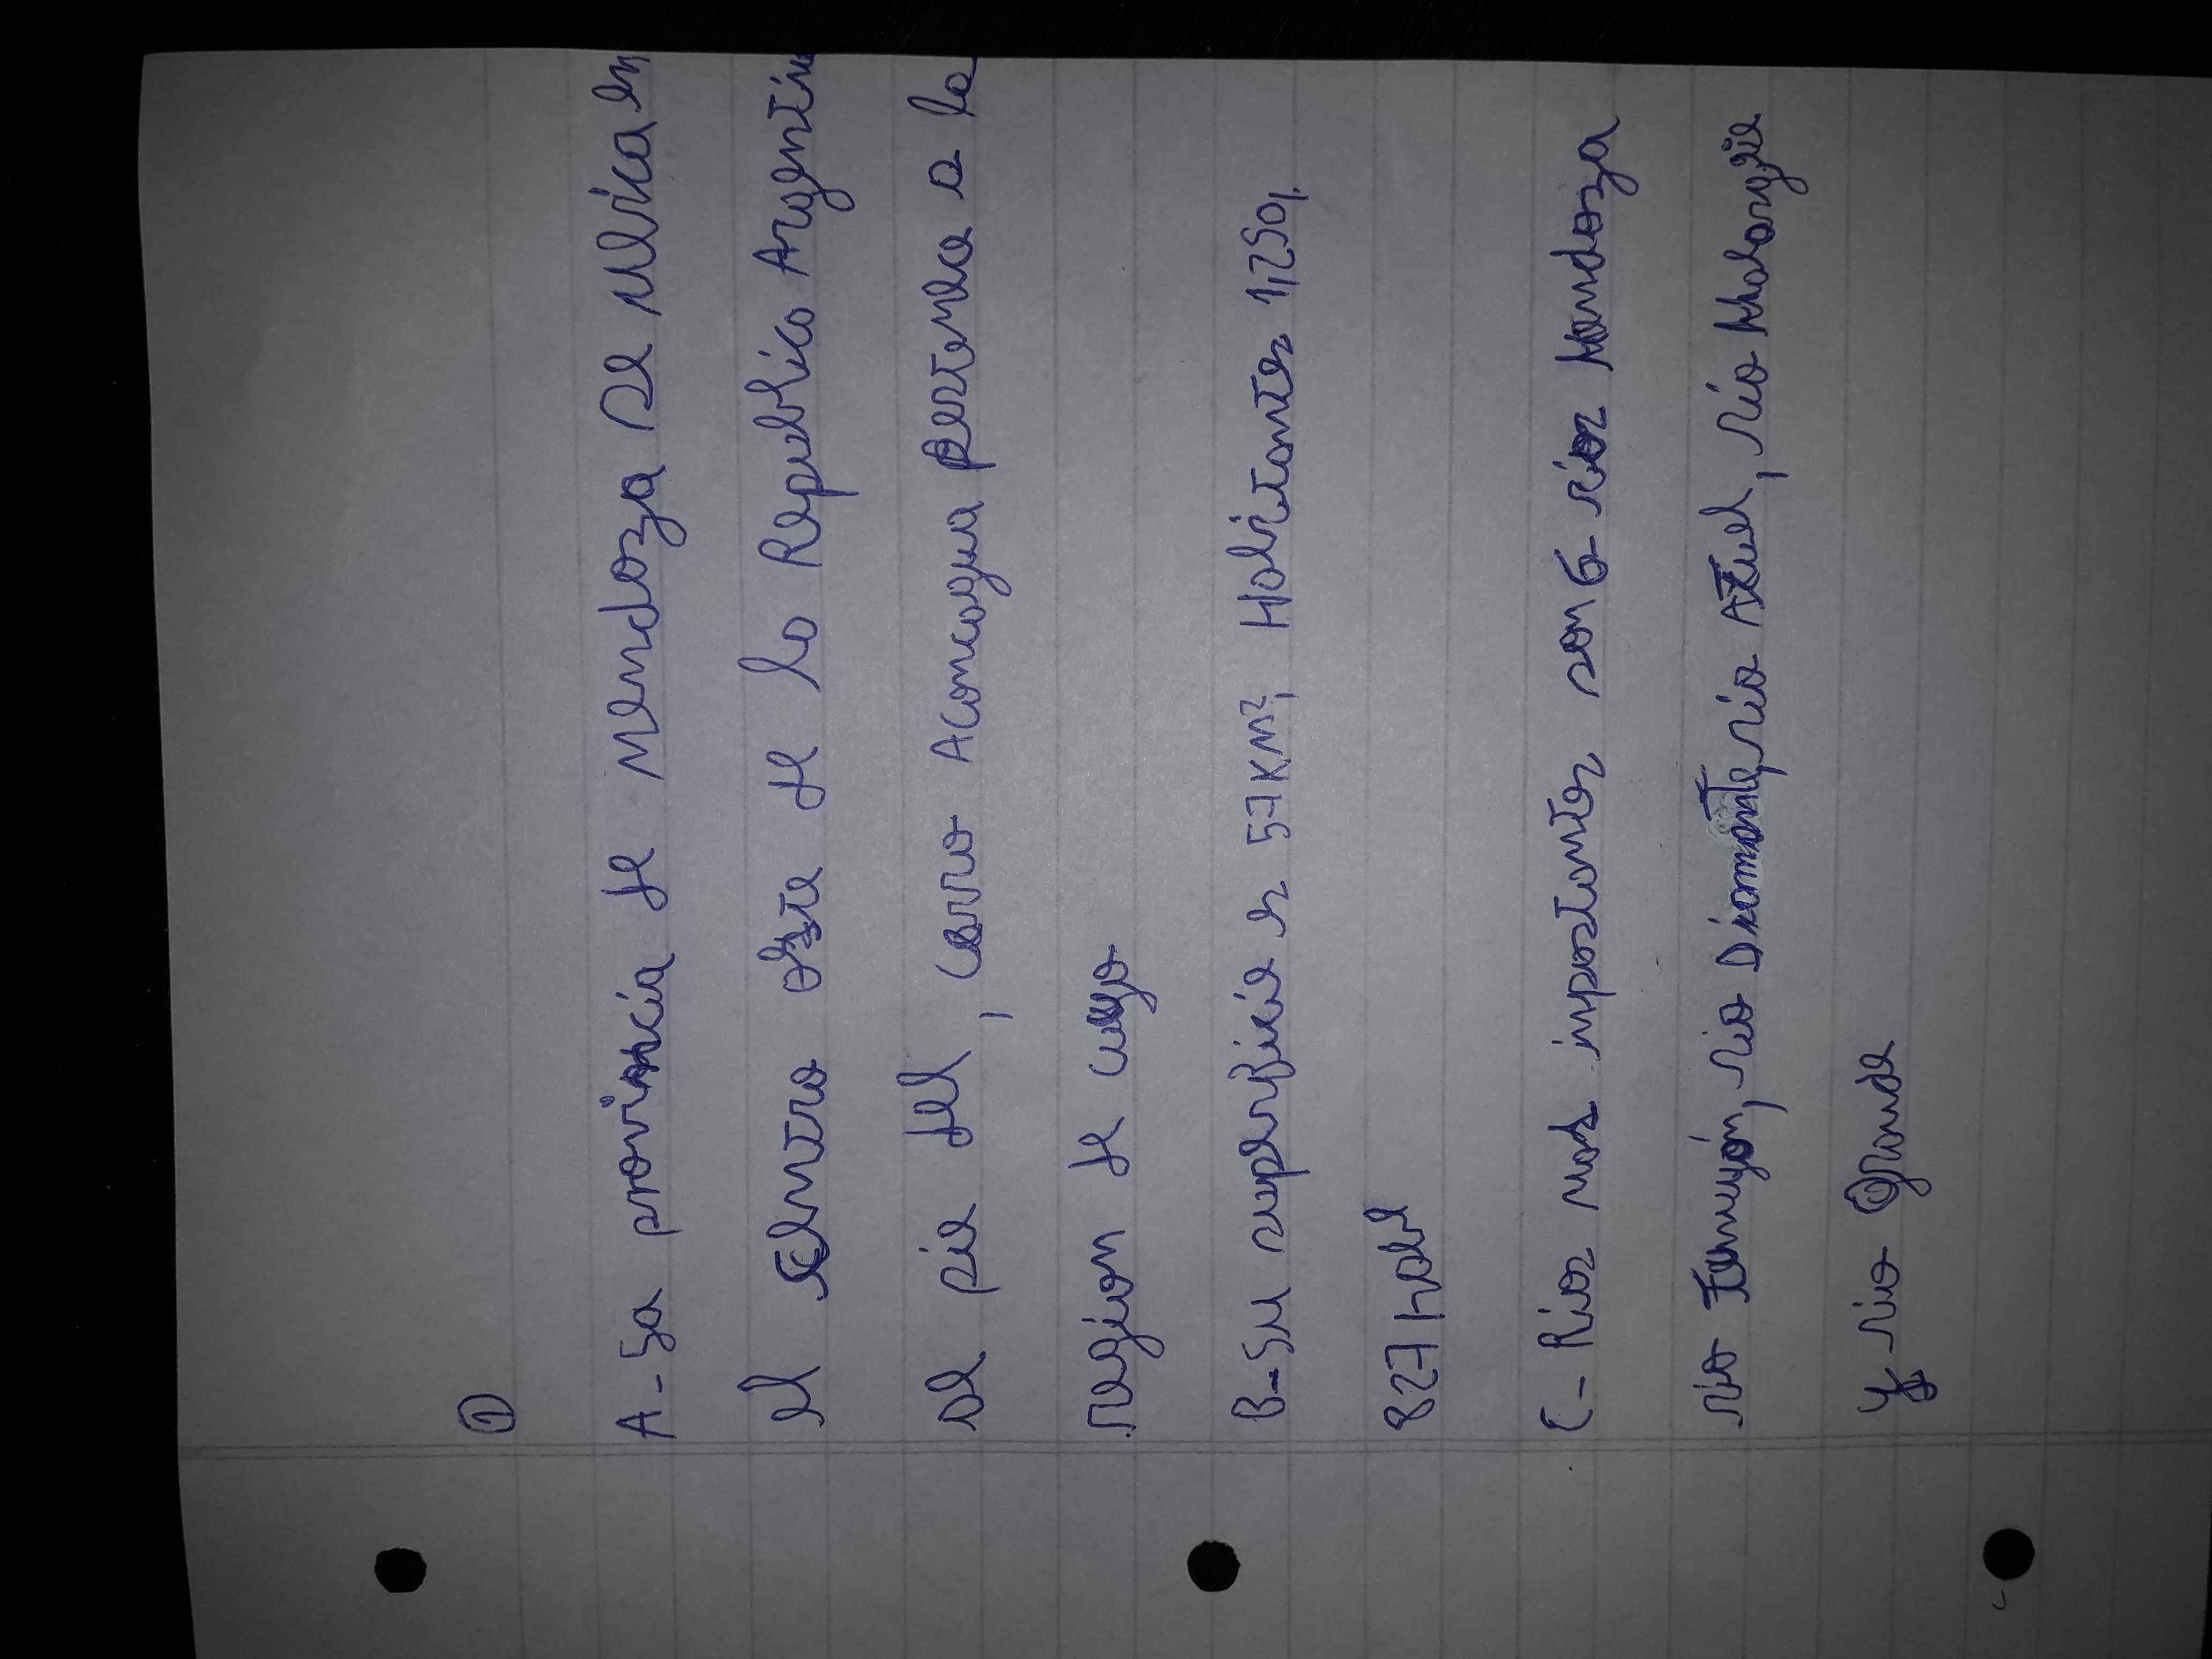 ①
A-La provincia de Mendoza se ubica en
el centro oeste de la Republica Argentin
al pie del, cerro Aconcagua pertenece a la
region de cuyo
B-Su superficie es 57KM², Habitantes 1,250,
827 hab
C-Rios mas importantes son 6 rios Mendoza
rio Tunuyón, rio Diamante, rio Atuel, rio Malargüe
y rio Grande